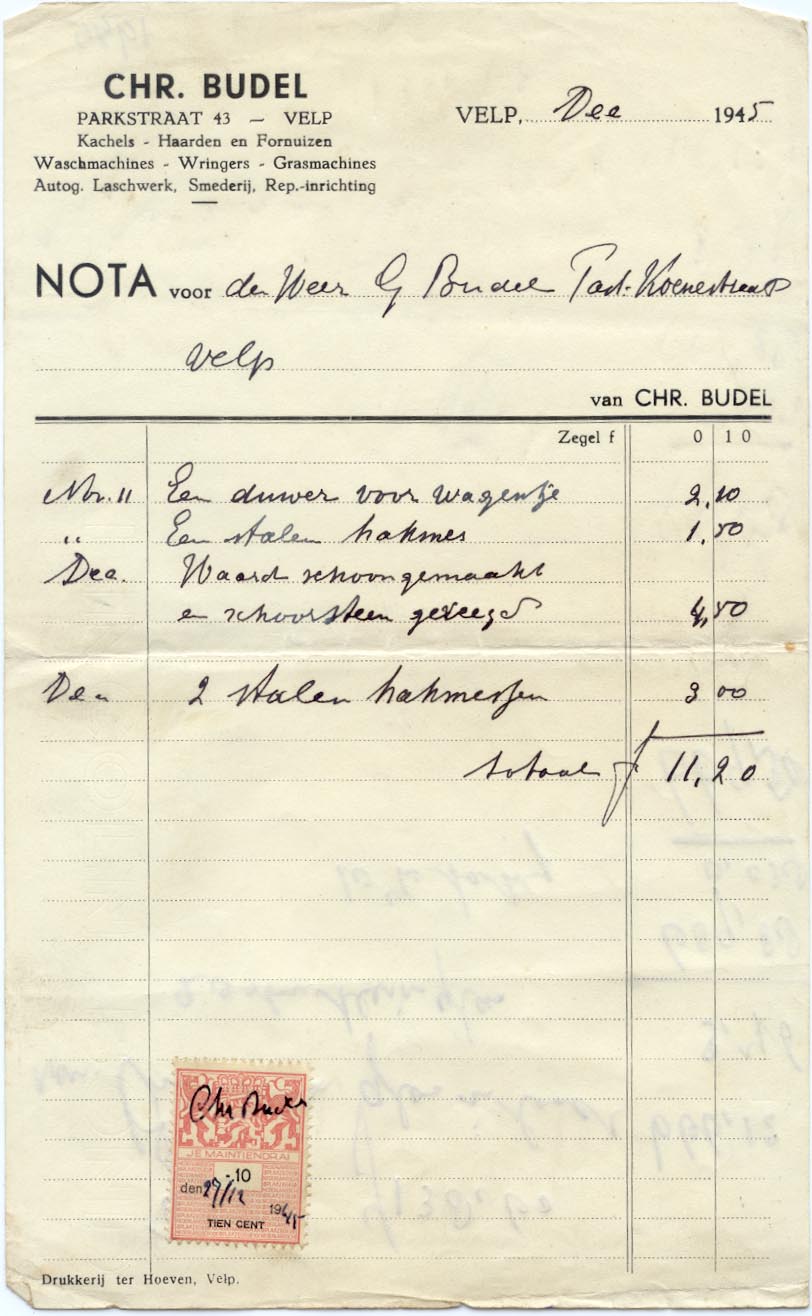 CHR. BUDEL
PARKSTRAAT 43 — VELP
Kachels - Haarden en Fornuizen
Waschmachines - Wringers - Grasmachines
Autog. Laschwerk, Smederij, Rep.-inrichting
VELP, Dec 1945
NOTA voor den Heer G Budel Past. Koenestraat
Velp
van CHR. BUDEL
Zegel f 0 10
Nov. 11 Een duwer voor wagentje 2,10
" Een stalen hakmes 1,50
Dec. Haard schoongemaakt
en schoorsteen geveegd 4,50
Dec 2 stalen hakmessen 3 00
totaal f 11,20
Chr Budel
JE MAINTIENDRAI
-.10
den 27/12 1945
TIEN CENT
Drukkerij ter Hoeven, Velp.